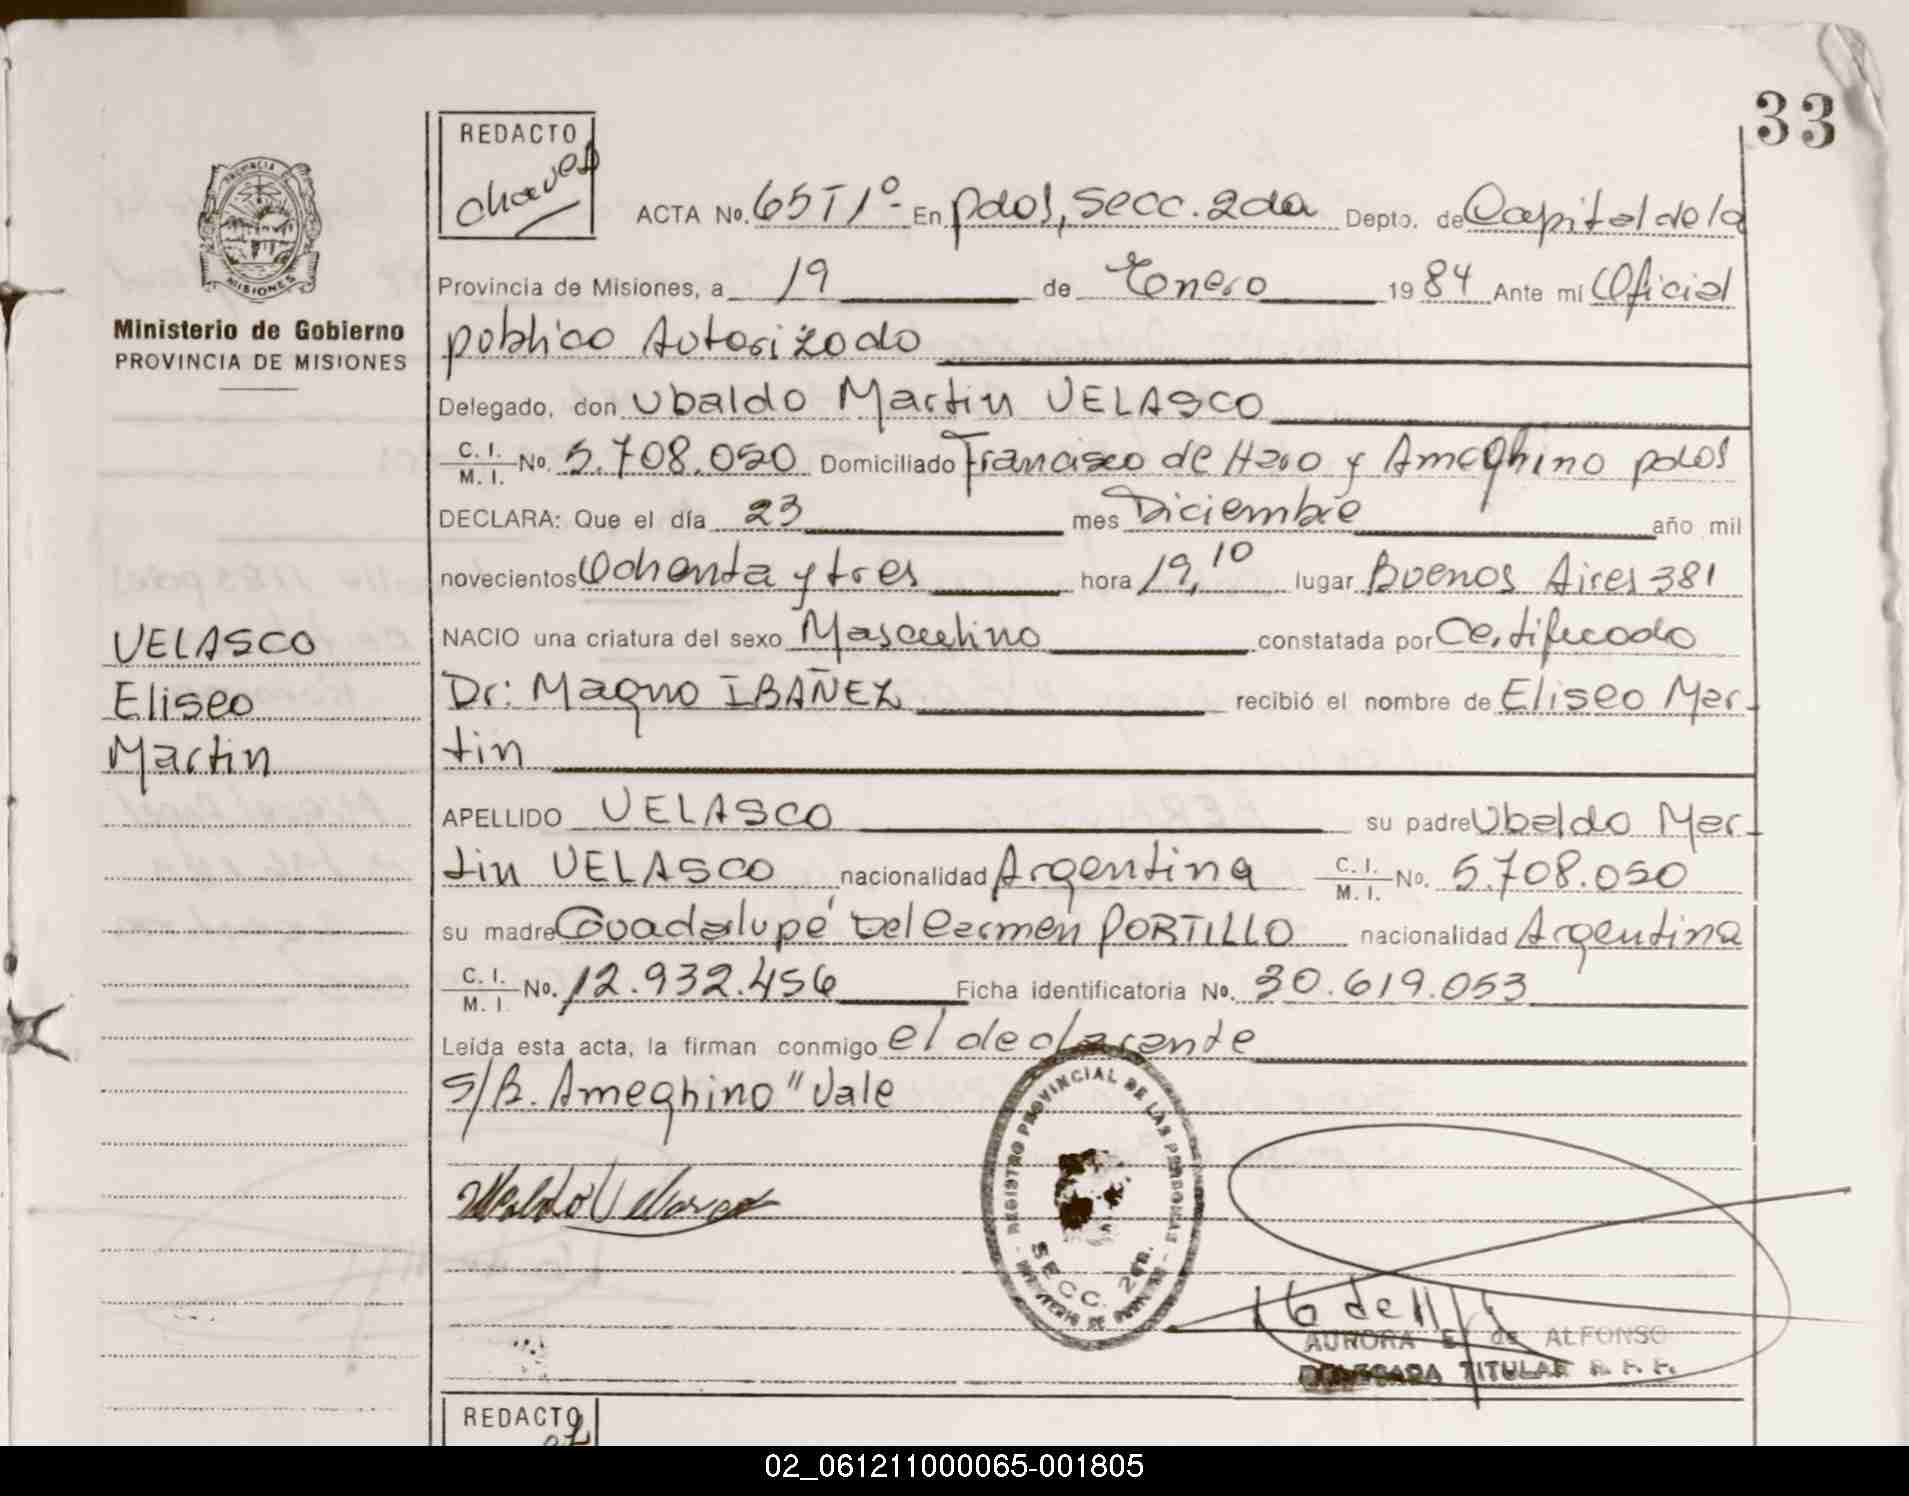 33
REDACTO
Chaves
PROVINCIA DE MISIONES
Ministerio de Gobierno
PROVINCIA DE MISIONES
ACTA No. 65 T1º- En pdas, Secc. 2da Depto. de Capital de la
Provincia de Misiones, a 19 de Enero 1984 Ante mí Oficial
publico Autorizado
Delegado, don Ubaldo Martin VELASCO
C. I. / M. I. No. 5.708.050 Domiciliado Francisco de Haro y Ameghino pdas
DECLARA: Que el día 23 mes Diciembre año mil
novecientos Ochenta y tres hora 19,10 lugar Buenos Aires 381
NACIO una criatura del sexo Masculino constatada por Certificado
Dr: Magno IBAÑEZ recibió el nombre de Eliseo Mar-
tin
APELLIDO VELASCO su padre Ubaldo Mar-
tin VELASCO nacionalidad Argentina C. I. / M. I. No. 5.708.050
su madre Guadalupe Del Carmen PORTILLO nacionalidad Argentina
C. I. / M. I. No. 12.932.456 Ficha identificatoria No. 30.619.053
Leída esta acta, la firman conmigo el declarante
S/B. Ameghino" Vale
VELASCO
Eliseo
Martin
Ubaldo Velasco
REGISTRO PROVINCIAL DE LAS PERSONAS
SECC. 2da.
AURORA E. de ALFONSO
DELEGADA TITULAR R. P. P.
REDACTO
02_061211000065-001805